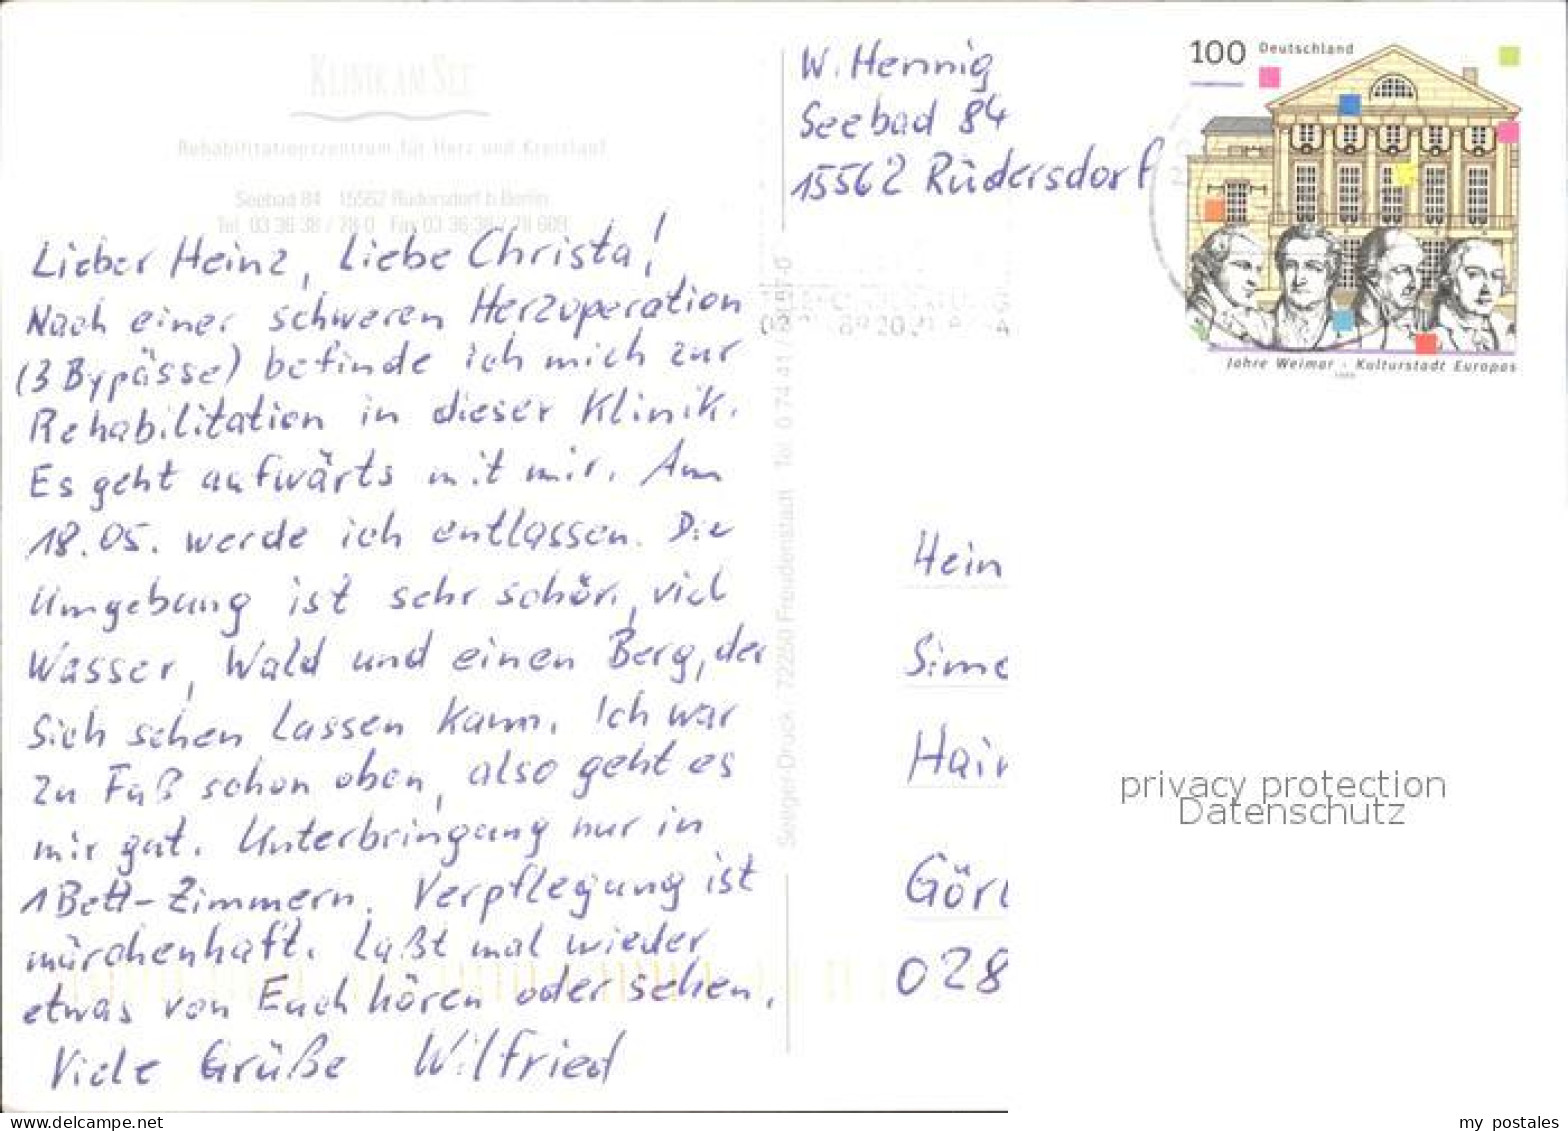 KLINIK AM SEE
Rehabilitationszentrum für Herz und Kreislauf
Seebad 84 15562 Rüdersdorf b. Berlin
Tel. 03 36 38 / 78 0 Fax 03 36 38 / 78 609
Lieber Heinz, Liebe Christa!
Nach einer schweren Herzoperation
(3 Bypässe) befinde ich mich zur
Rehabilitation in dieser Klinik.
Es geht aufwärts mit mir. Am
18.05. werde ich entlassen. Die
Umgebung ist sehr schön, viel
Wasser, Wald und einen Berg, der
sich sehen lassen kann. Ich war
zu Fuß schon oben, also geht es
mir gut. Unterbringung nur in
1Bett-Zimmern. Verpflegung ist
märchenhaft. Laßt mal wieder
etwas von Euch hören oder sehen.
Viele Grüße Wilfried
Seeger-Druck 72250 Freudenstadt Tel. 0 74 41 /
W. Hennig
Seebad 84
15562 Rüdersdorf
100 Deutschland
Jahre Weimar · Kulturstadt Europas
1999
Hein
Sime
Hair
Görl
028
privacy protection
Datenschutz
my postales